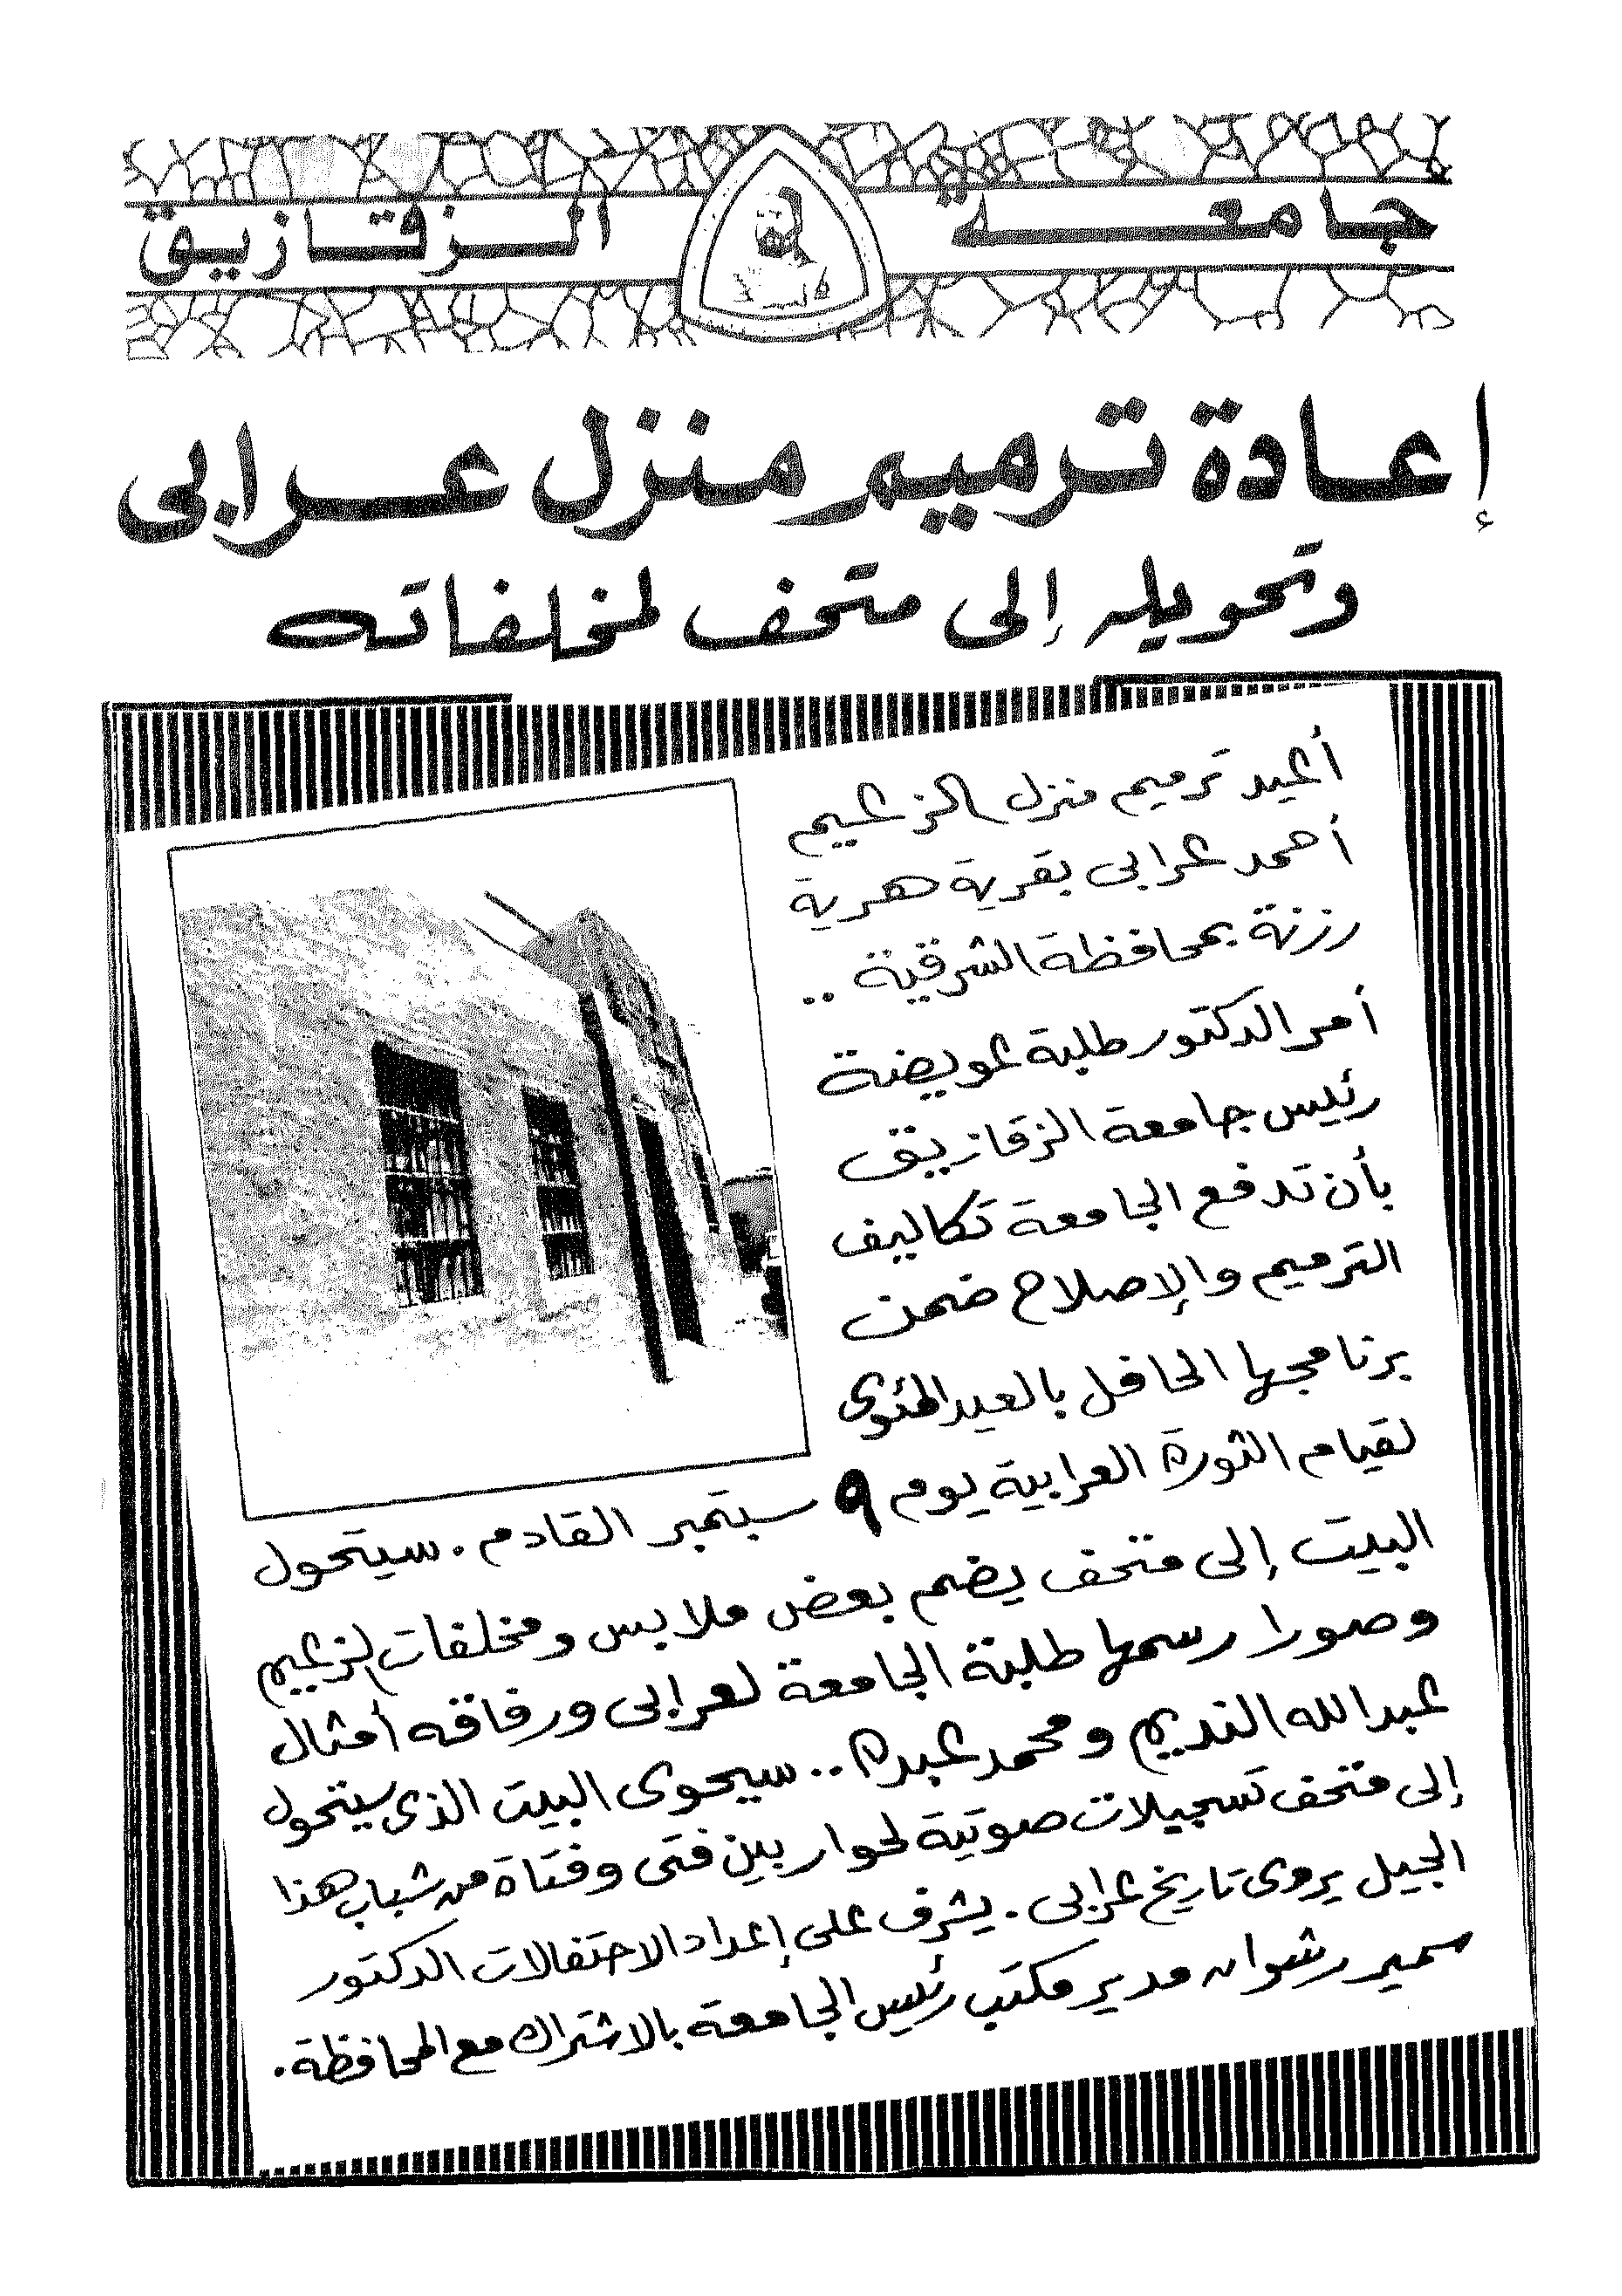 جامعة الزقازيق
إعادة ترميم منزل عرابى
وتحويله إلى متحف لمخلفاته
أعيد ترميم منزل الزعيم
أحمد عرابى بقرية هرية
رزنة بمحافظة الشرقية ..
أمر الدكتور طلبة عويضة
رئيس جامعة الزقازيق
بأن تدفع الجامعة تكاليف
الترميم والإصلاح ضمن
برنامجها الحافل بالعيد المئوى
لقيام الثورة العرابية يوم ٩ سبتمبر القادم . سيتحول
البيت إلى متحف يضم بعض ملابس ومخلفات الزعيم
وصورا رسمها طلبة الجامعة لعرابى ورفاقه أمثال
عبدالله النديم ومحمد عبده .. سيحوى البيت الذى سيتحول
إلى متحف تسجيلات صوتية لحوار بين فتى وفتاة من شباب هذا
الجيل يروى تاريخ عرابى . يشرف على إعداد الاحتفالات الدكتور
سمير رشوان مدير مكتب رئيس الجامعة بالاشتراك مع المحافظة .